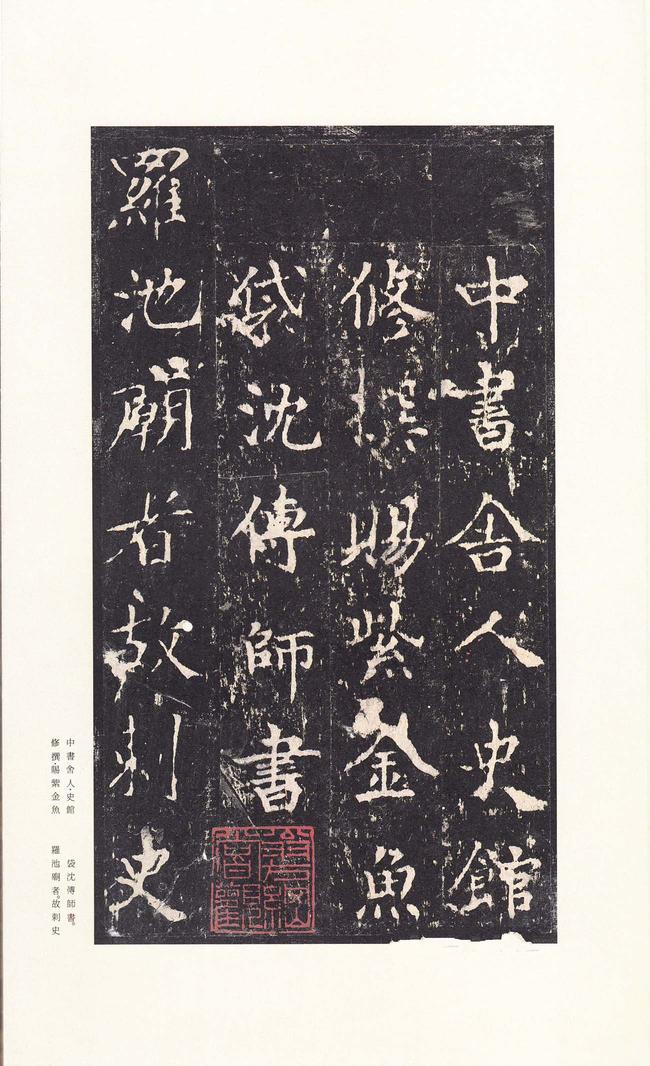 中書舍人史館
修撰賜紫金魚
袋沈傳師書
羅池廟者故刺史
中書舍人、史館
修撰、賜紫金魚
袋沈傳師書。
羅池廟者。故刺史